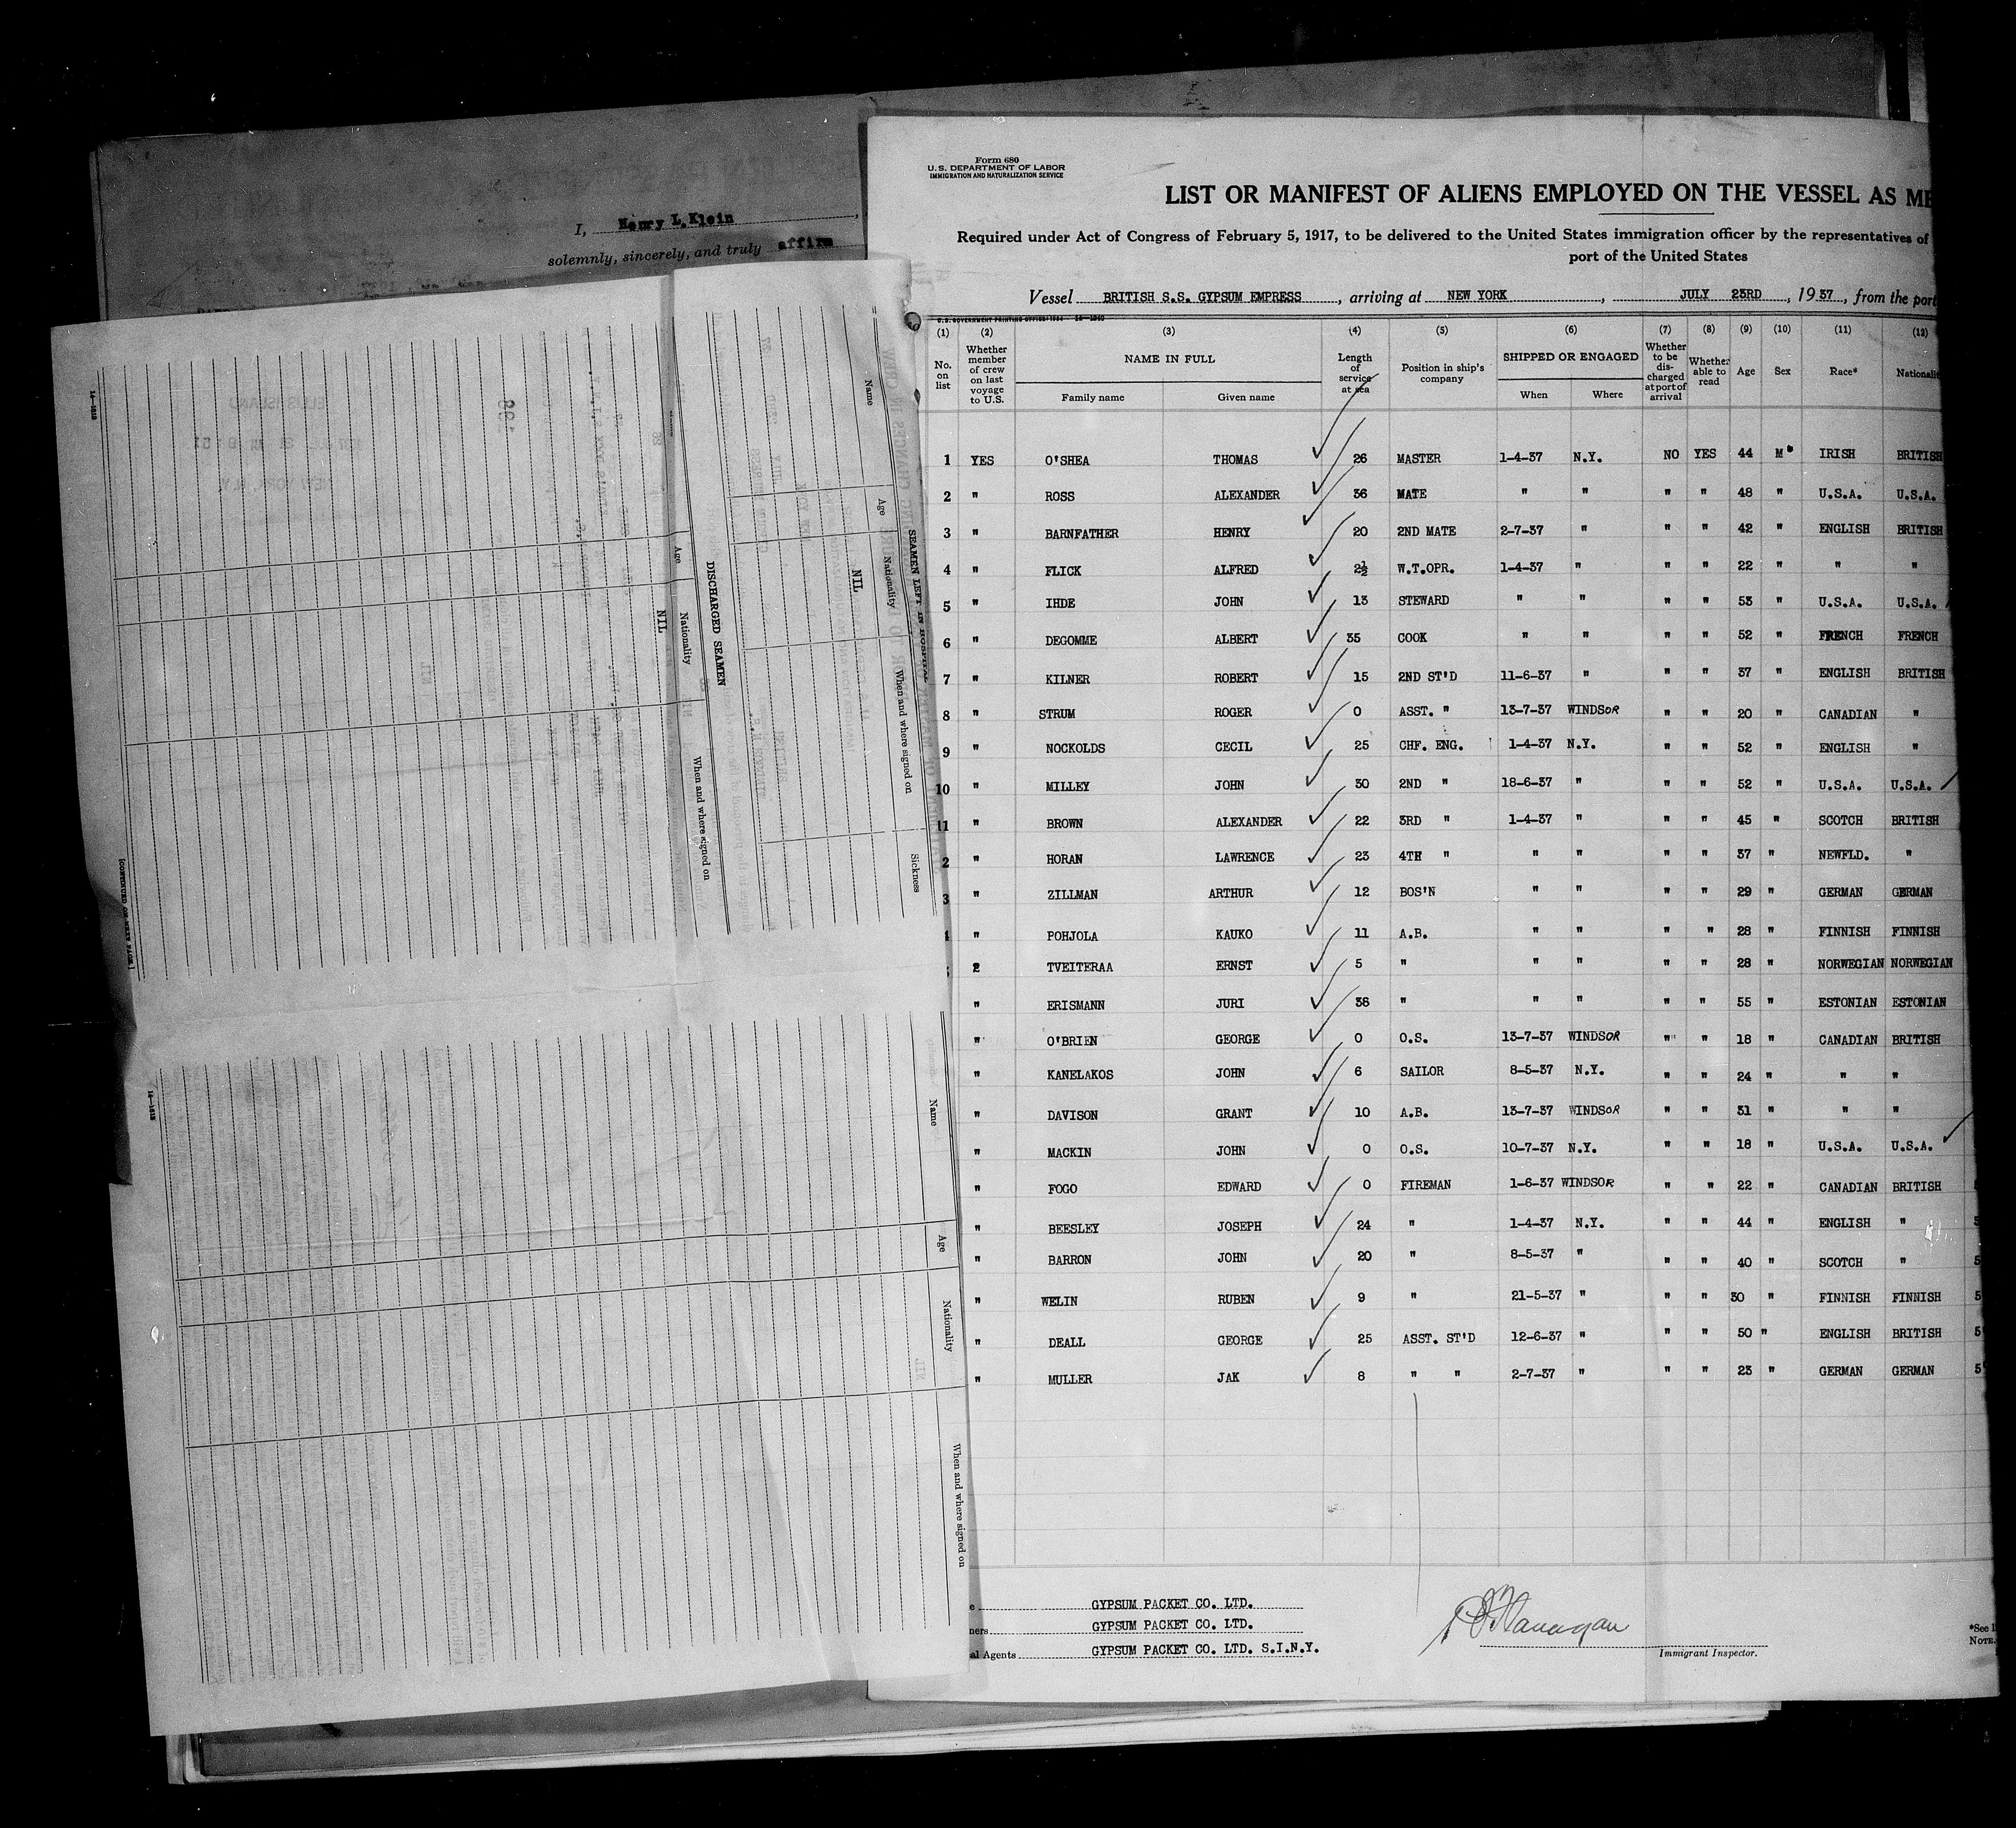 I, Henry L. Klein
solemnly, sincerely, and truly affirm
Form 680
U. S. DEPARTMENT OF LABOR
IMMIGRATION AND NATURALIZATION SERVICE
LIST OR MANIFEST OF ALIENS EMPLOYED ON THE VESSEL AS ME
Required under Act of Congress of February 5, 1917, to be delivered to the United States immigration officer by the representatives of
port of the United States
Vessel BRITISH S.S. GYPSUM EMPRESS, arriving at NEW YORK, JULY 23RD, 1937, from the port
(1) (2) (3) (4) (5) (6) (7) (8) (9) (10) (11) (12)
No. on list Whether member of crew on last voyage to U.S. NAME IN FULL Family name Given name Length of service at sea Position in ship's company SHIPPED OR ENGAGED When Where Whether to be discharged at port of arrival Whether able to read Age Sex Race* Nationalit
1 YES O'SHEA THOMAS 26 MASTER 1-4-37 N.Y. NO YES 44 M IRISH BRITISH
2 " ROSS ALEXANDER 36 MATE " " " " 48 " U.S.A. U.S.A.
3 " BARNFATHER HENRY 20 2ND MATE 2-7-37 " " " 42 " ENGLISH BRITISH
4 " FLICK ALFRED 2½ W.T.OPR. 1-4-37 " " " 22 " " "
5 " IHDE JOHN 13 STEWARD " " " " 53 " U.S.A. U.S.A.
6 " DEGOMME ALBERT 35 COOK " " " " 52 " FRENCH FRENCH
7 " KILNER ROBERT 15 2ND ST'D 11-6-37 " " " 37 " ENGLISH BRITISH
8 " STRUM ROGER 0 ASST. " 13-7-37 WINDSOR " " 20 " CANADIAN "
9 " NOCKOLDS CECIL 25 CHF. ENG. 1-4-37 N.Y. " " 52 " ENGLISH "
10 " MILLEY JOHN 30 2ND " 18-6-37 " " " 52 " U.S.A. U.S.A.
11 " BROWN ALEXANDER 22 3RD " 1-4-37 " " " 45 " SCOTCH BRITISH
2 " HORAN LAWRENCE 23 4TH " " " " " 37 " NEWFLD. "
3 " ZILLMAN ARTHUR 12 BOS'N " " " " 29 " GERMAN GERMAN
" POHJOLA KAUKO 11 A.B. " " " " 28 " FINNISH FINNISH
2 TVEITERAA ERNST 5 " " " " " 28 " NORWEGIAN NORWEGIAN
" ERISMANN JURI 36 " " " " " 55 " ESTONIAN ESTONIAN
" O'BRIEN GEORGE 0 O.S. 13-7-37 WINDSOR " " 18 " CANADIAN BRITISH
" KANELAKOS JOHN 6 SAILOR 8-5-37 N.Y. " " 24 " " "
" DAVISON GRANT 10 A.B. 13-7-37 WINDSOR " " 31 " " "
" MACKIN JOHN 0 O.S. 10-7-37 N.Y. " " 18 " U.S.A. U.S.A.
" FOGO EDWARD 0 FIREMAN 1-6-37 WINDSOR " " 22 " CANADIAN BRITISH
" BEESLEY JOSEPH 24 " 1-4-37 N.Y. " " 44 " ENGLISH " 5
" BARRON JOHN 20 " 8-5-37 " " " 40 " SCOTCH " 5
" WELIN RUBEN 9 " 21-5-37 " " " 30 " FINNISH FINNISH 5
" DEALL GEORGE 25 ASST. ST'D 12-6-37 " " " 50 " ENGLISH BRITISH 5
" MULLER JAK 8 " " 2-7-37 " " " 23 " GERMAN GERMAN 5
GYPSUM PACKET CO. LTD.
ners GYPSUM PACKET CO. LTD.
al Agents GYPSUM PACKET CO. LTD. S.I.N.Y.
Flanagan
Immigrant Inspector.
*See
NOTE.
SEAMEN LEFT IN HOSPITAL
Name Age Nationality When and where signed on Sickness
NIL
DISCHARGED SEAMEN
Age Nationality When and where signed on
NIL
[CONTINUED ON NEXT PAGE]
14—1513
Name Age Nationality When and where signed on
14—1513